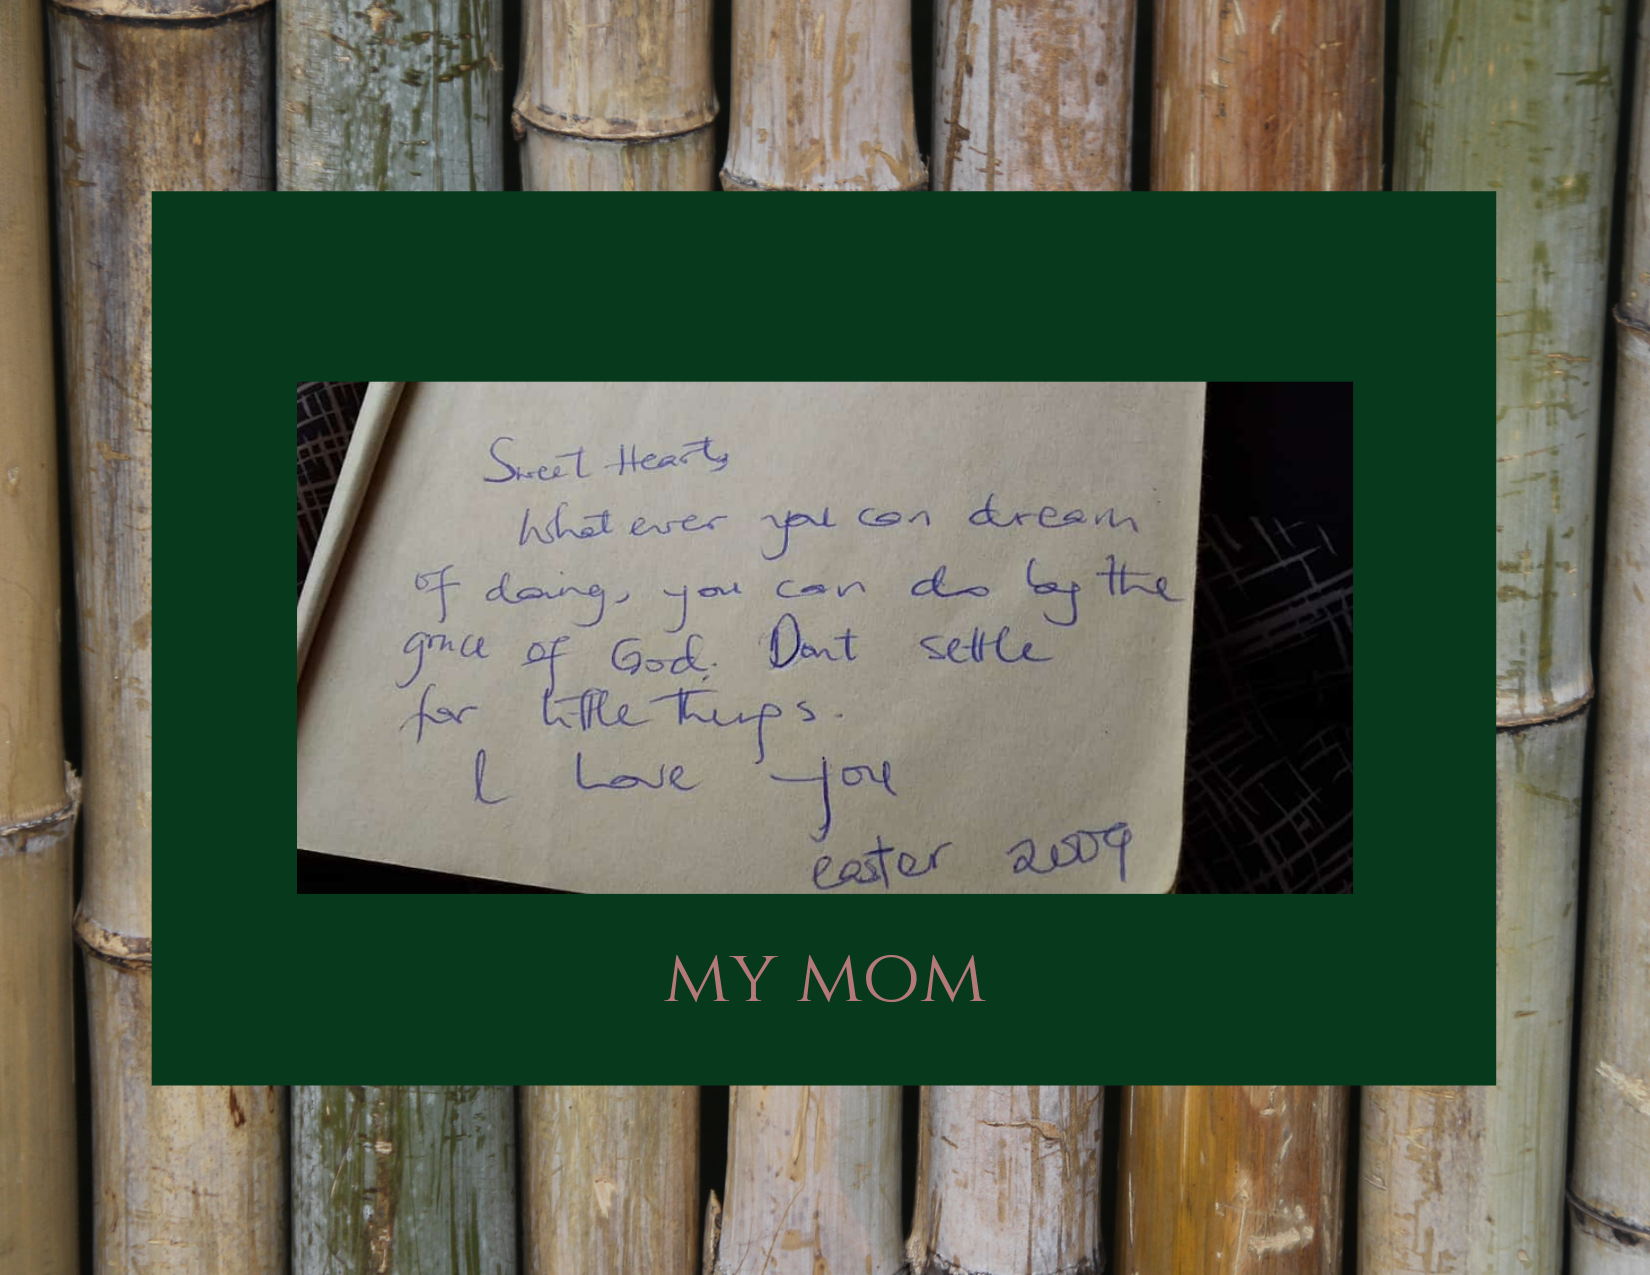 Sweet Heart,
Whatever you can dream
of doing, you can do by the
grace of God. Dont settle
for little things.
I Love you
easter 2009
MY MOM